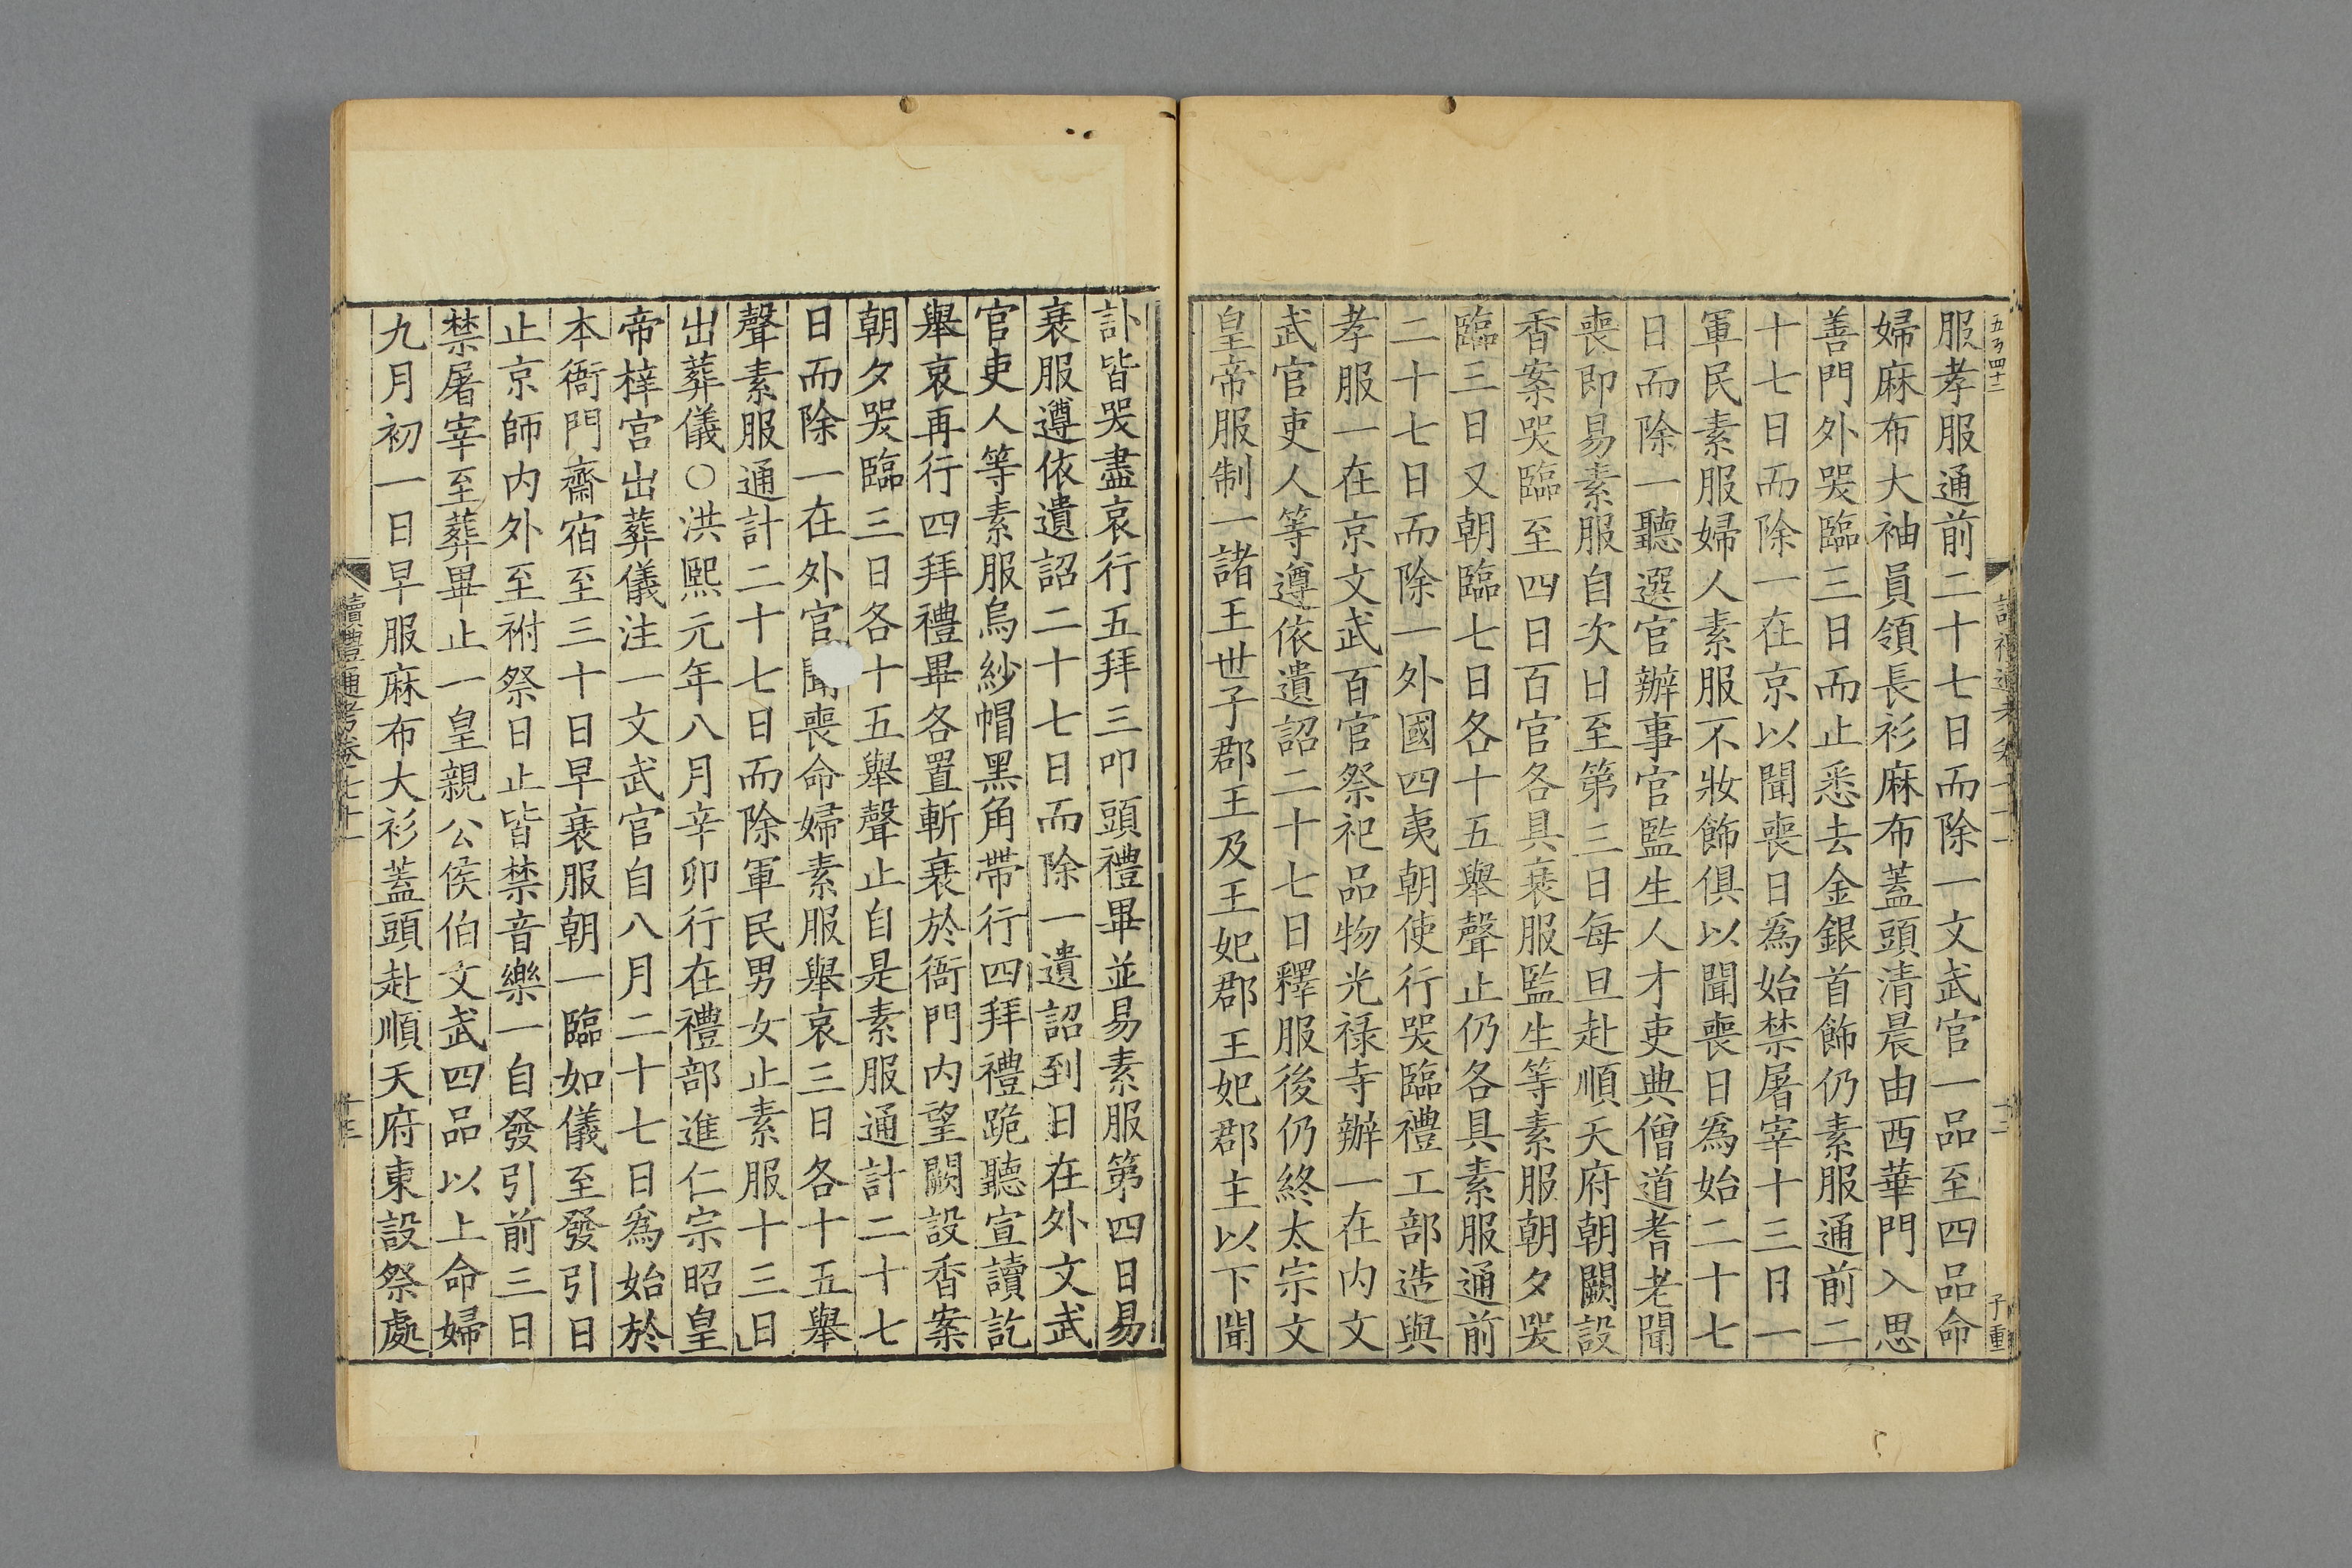 服孝服通前二十七日而除一文武官一品至四品命
婦麻布大袖員領長衫麻布蓋頭清晨由西華門入思
善門外哭臨三日而止悉去金銀首飾仍素服通前二
十七日而除一在京以聞喪日爲始禁屠宰十三日一
軍民素服婦人素服不妝飾俱以聞喪日爲始二十七
日而除一聽選官辦事官監生人才吏典僧道耆老聞
喪即易素服自次日至第三日每旦赴順天府朝闕設
香案哭臨至四日百官各具衰服監生等素服朝夕哭
臨三日又朝臨七日各十五舉聲止仍各具素服通前
二十七日而除一外國四夷朝使行哭臨禮工部造與
孝服一在京文武百官祭祀品物光禄寺辦一在内文
武官吏人等遵依遺詔二十七日釋服後仍終太宗文
皇帝服制一諸王世子郡王及王妃郡王妃郡主以下聞
訃皆哭盡哀行五拜三叩頭禮畢並易素服第四日易
衰服遵依遺詔二十七日而除一遺詔到日在外文武
官吏人等素服烏紗帽黑角帶行四拜禮跪聽宣讀訖
舉哀再行四拜禮畢各置斬衰於衙門内望闕設香案
朝夕哭臨三日各十五舉聲止自是素服通計二十七
日而除一在外官聞喪命婦素服舉哀三日各十五舉
聲素服通計二十七日而除軍民男女止素服十三日
出葬儀○洪熙元年八月辛卯行在禮部進仁宗昭皇
帝梓宮出葬儀注一文武官自八月二十七日爲始於
本衙門齋宿至三十日早衰服朝一臨如儀至發引日
止京師内外至祔祭日止皆禁音樂一自發引前三日
禁屠宰至葬畢止一皇親公侯伯文武四品以上命婦
九月初一日早服麻布大衫蓋頭赴順天府東設祭處
讀禮通考卷七十一